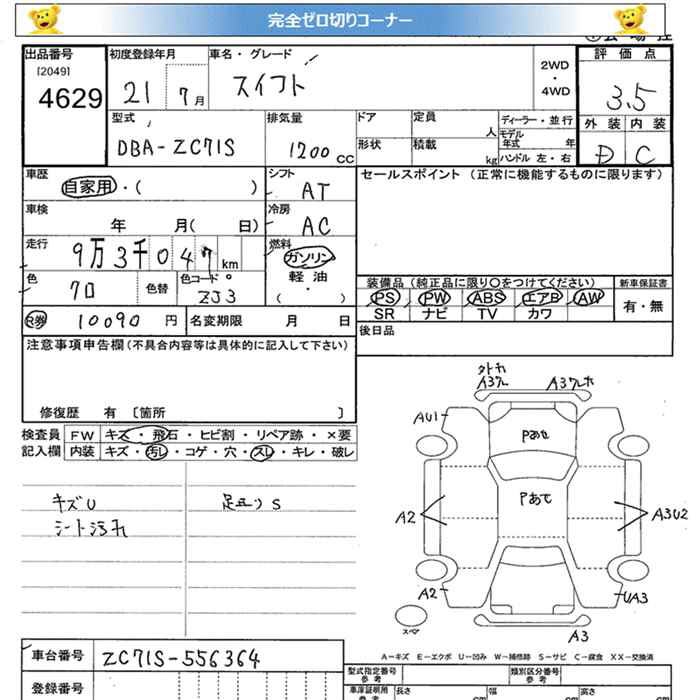 完全ゼロ切りコーナー
出品番号
[2049]
4629
初度登録年月
21 7月
車名・グレード
スイフト
2WD
・
4WD
評価点
3.5
外装 内装
D C
型式
DBA-ZC71S
排気量
1200 CC
ドア
形状
定員
人
積載
kg
ディーラー・並行
モデル年式 年
ハンドル 左・右
車歴
自家用・( )
シフト
AT
セールスポイント (正常に機能するものに限ります)
車検
年 月( 日)
冷房
AC
走行
9万3千04 km
燃料
ガソリン
軽油
( ・ )
色
クロ
色替
色コード
ZJ3
装備品 (純正品に限り○をつけてください)
新車保証書
PS PW ABS エアB AW
有・無
SR ナビ TV カワ
R券 10090 円
名変期限 月 日
後日品
注意事項申告欄(不具合内容等は具体的に記入して下さい)
修復歴 有 〔箇所 〕
検査員 FW キズ・飛石・ヒビ割・リペア跡・×要
記入欄 内装 キズ・汚レ・コゲ・穴・スレ・キレ・破レ
キズU
シート汚れ
S
A37レ
AU1
Pあせ
Pあせ
A2
A3U2
A2
UA3
スペア
A3
A―キズ E―エクボ U―凹み W―補修跡 S―サビ C―腐食 XX―交換済
車台番号 ZC71S-556364
登録番号
型式指定番号
参考
類別区分番号
参考
車庫証明用
参考
長さ cm
幅 cm
高さ cm